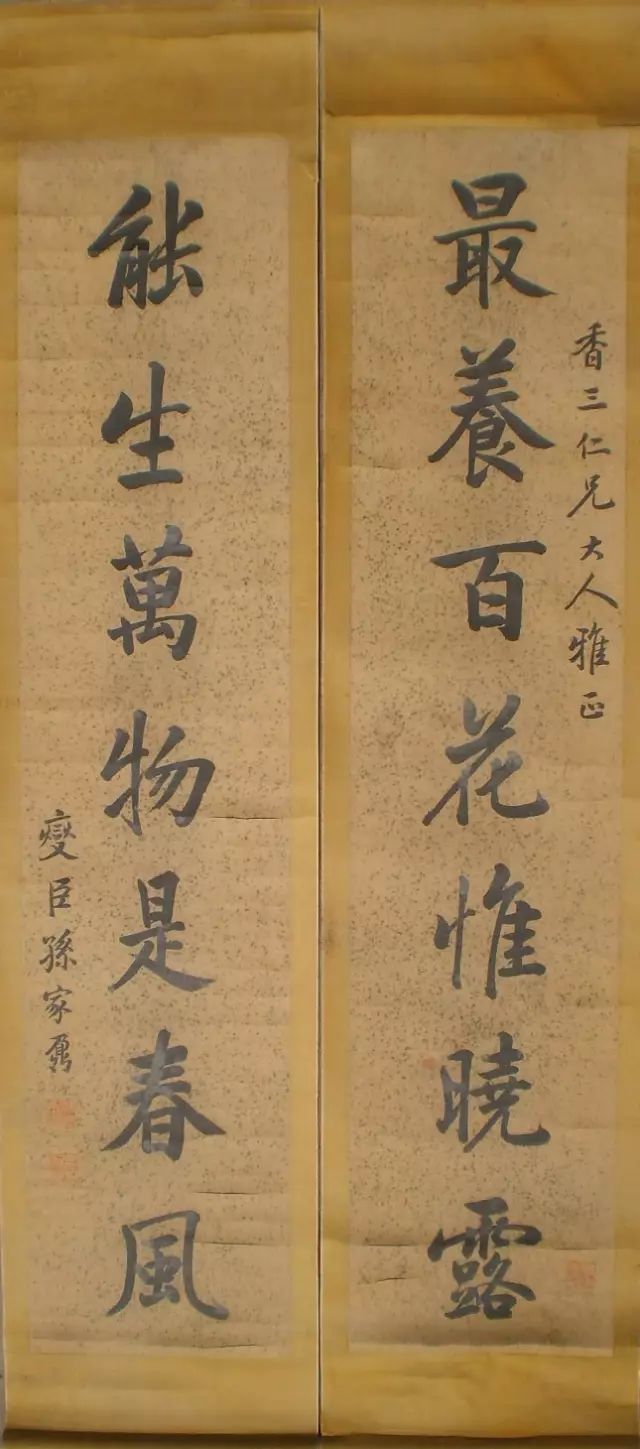 最養百花惟曉露
香三仁兄大人雅正
能生萬物是春風
燮臣孫家鼐